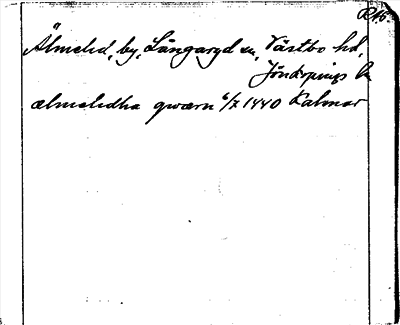 R16
Älmelid, by, Långaryd sn, Västbo hd,
Jönköpings l
ælmelidha qwærn 6/7 1440 Kalmar